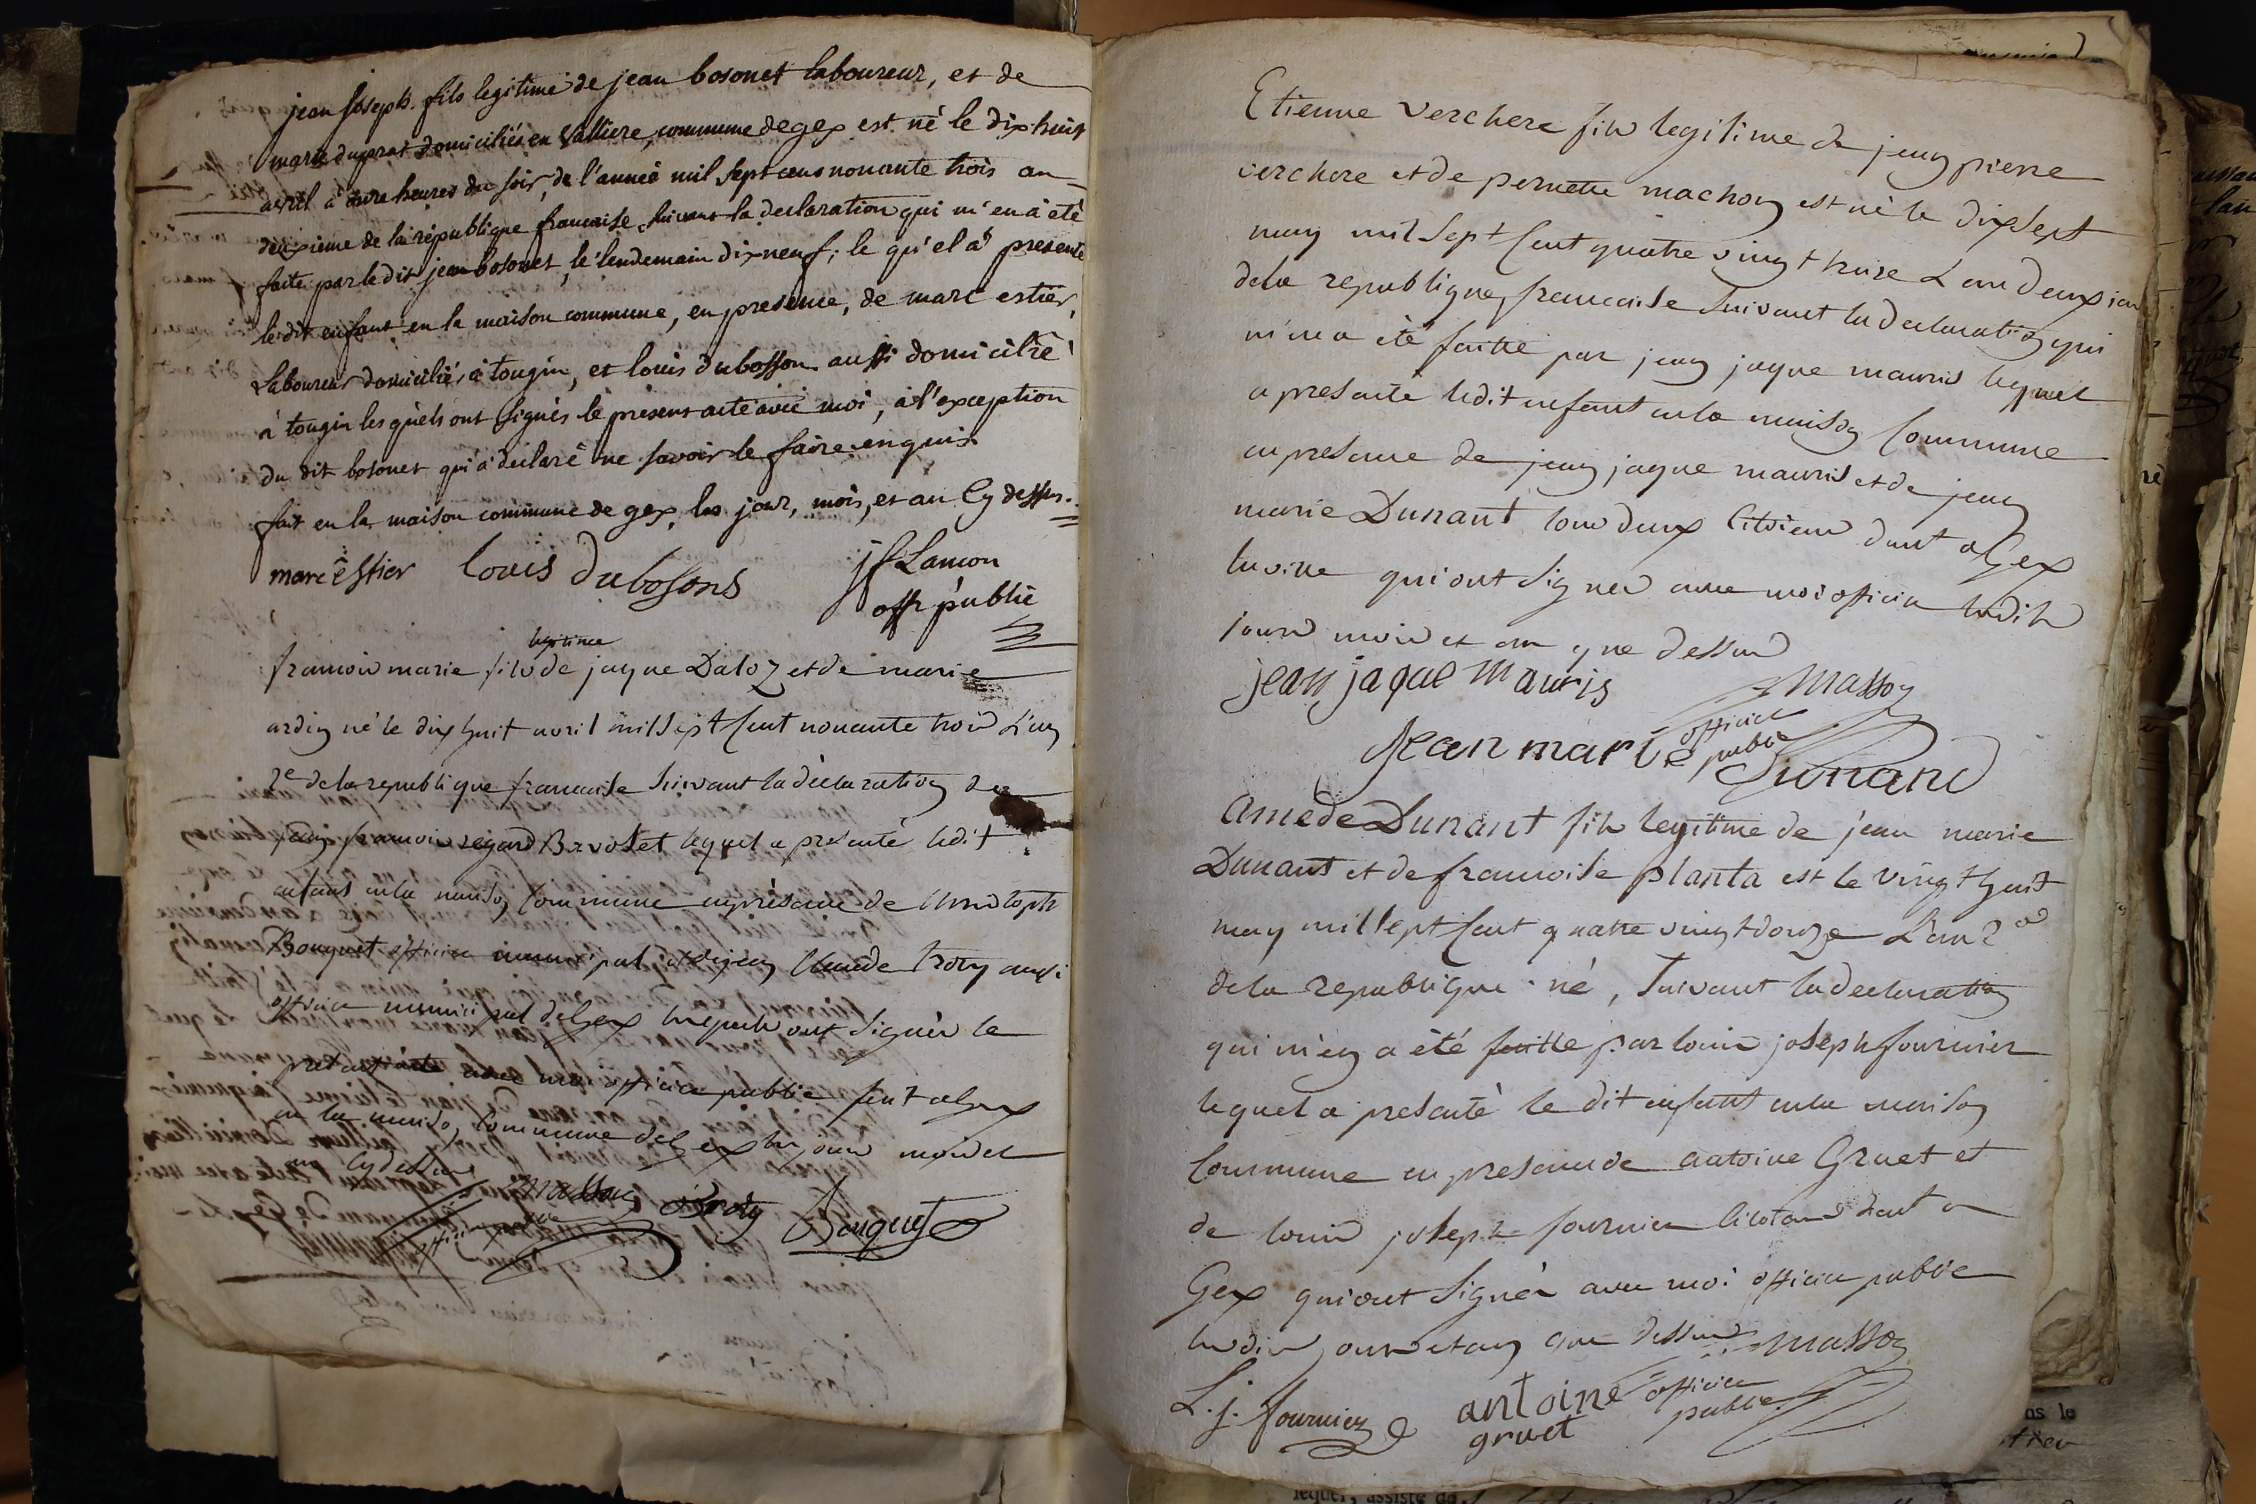 jean joseph fils legitime de jean bosonet laboureur, et de
marie duprat domiciliés en Valliere, commune de gex est né le dix huit
avril à onze heures du soir, de l'année mil sept cens nonante trois an
deuxieme de la république francaise, suivant la declaration qui m'en a été
faite par le dit jean bosonet, le lendemain dixneuf, le qu'el a présenté
le dit enfant en la maison commune, en presence, de marc estier,
laboureur domicilié à tougin, et louis dubosson aussi domicilié
à tougin les quels ont signés le présent acte avec moi, à l'exception
du dit bosonet qui a déclaré ne savoir le faire enquis
fait en la maison commune de gex, les jour, mois, et an cy dessus.
marc estier louis dubosons jf Lancon
offr public
legitime
francois marie fils de jaque Daloz et de marie
ardin né le dix huit avril mil sept Cent nonante trois L'an
2e de la republique francaise suivant la déclaration de
jean francois regard lequel a présenté ledit
enfant en la maison Commune en présence de Christoph
Bouquet officier municipal et Claude trotty aussi
officier municipal de Gex lesquels ont signér le
présent acte avec moi officier public fait a Gex
en la maison Commune de Gex les jours mois et
an Cy dessus
masson Bouquet
Etienne verchere fils legitime de jean pierre
verchere et de pernette machon est né le dix sept
may mil sept Cent quatre vingt treize L an deuxiem
de la republique francaise suivant la declaration qui
m'en a été faitte par jean jaque mauris lequel
a présenté ledit enfant en la maison Commune
en presance de jean jaque mauris et de jean
marie Dunant tous deux Citoiens d'ent a Gex
la ville qui ont signés avec moi officier lesdits
jours mois et an que dessus
jean jaque mauris masson
officier
public
Jean marie Dunand
Amede Dunant fils legitime de jean marie
Dunant et de francoise planta est le vingt huit
may mil sept Cent quatre vingt douze L'an 2e
de la republique né, suivant la declaration
qui m'en a été faitte par louis joseph fournier
lequel a présenté le dit enfant en la maison
Commune en presance de antoine Gruet et
de louis joseph fournier Citoiens d'ent a
Gex qui ont signér avec moi officier public
lesdits jours et an que dessus masson
officier
public
L. j. fournier antoine
gruet